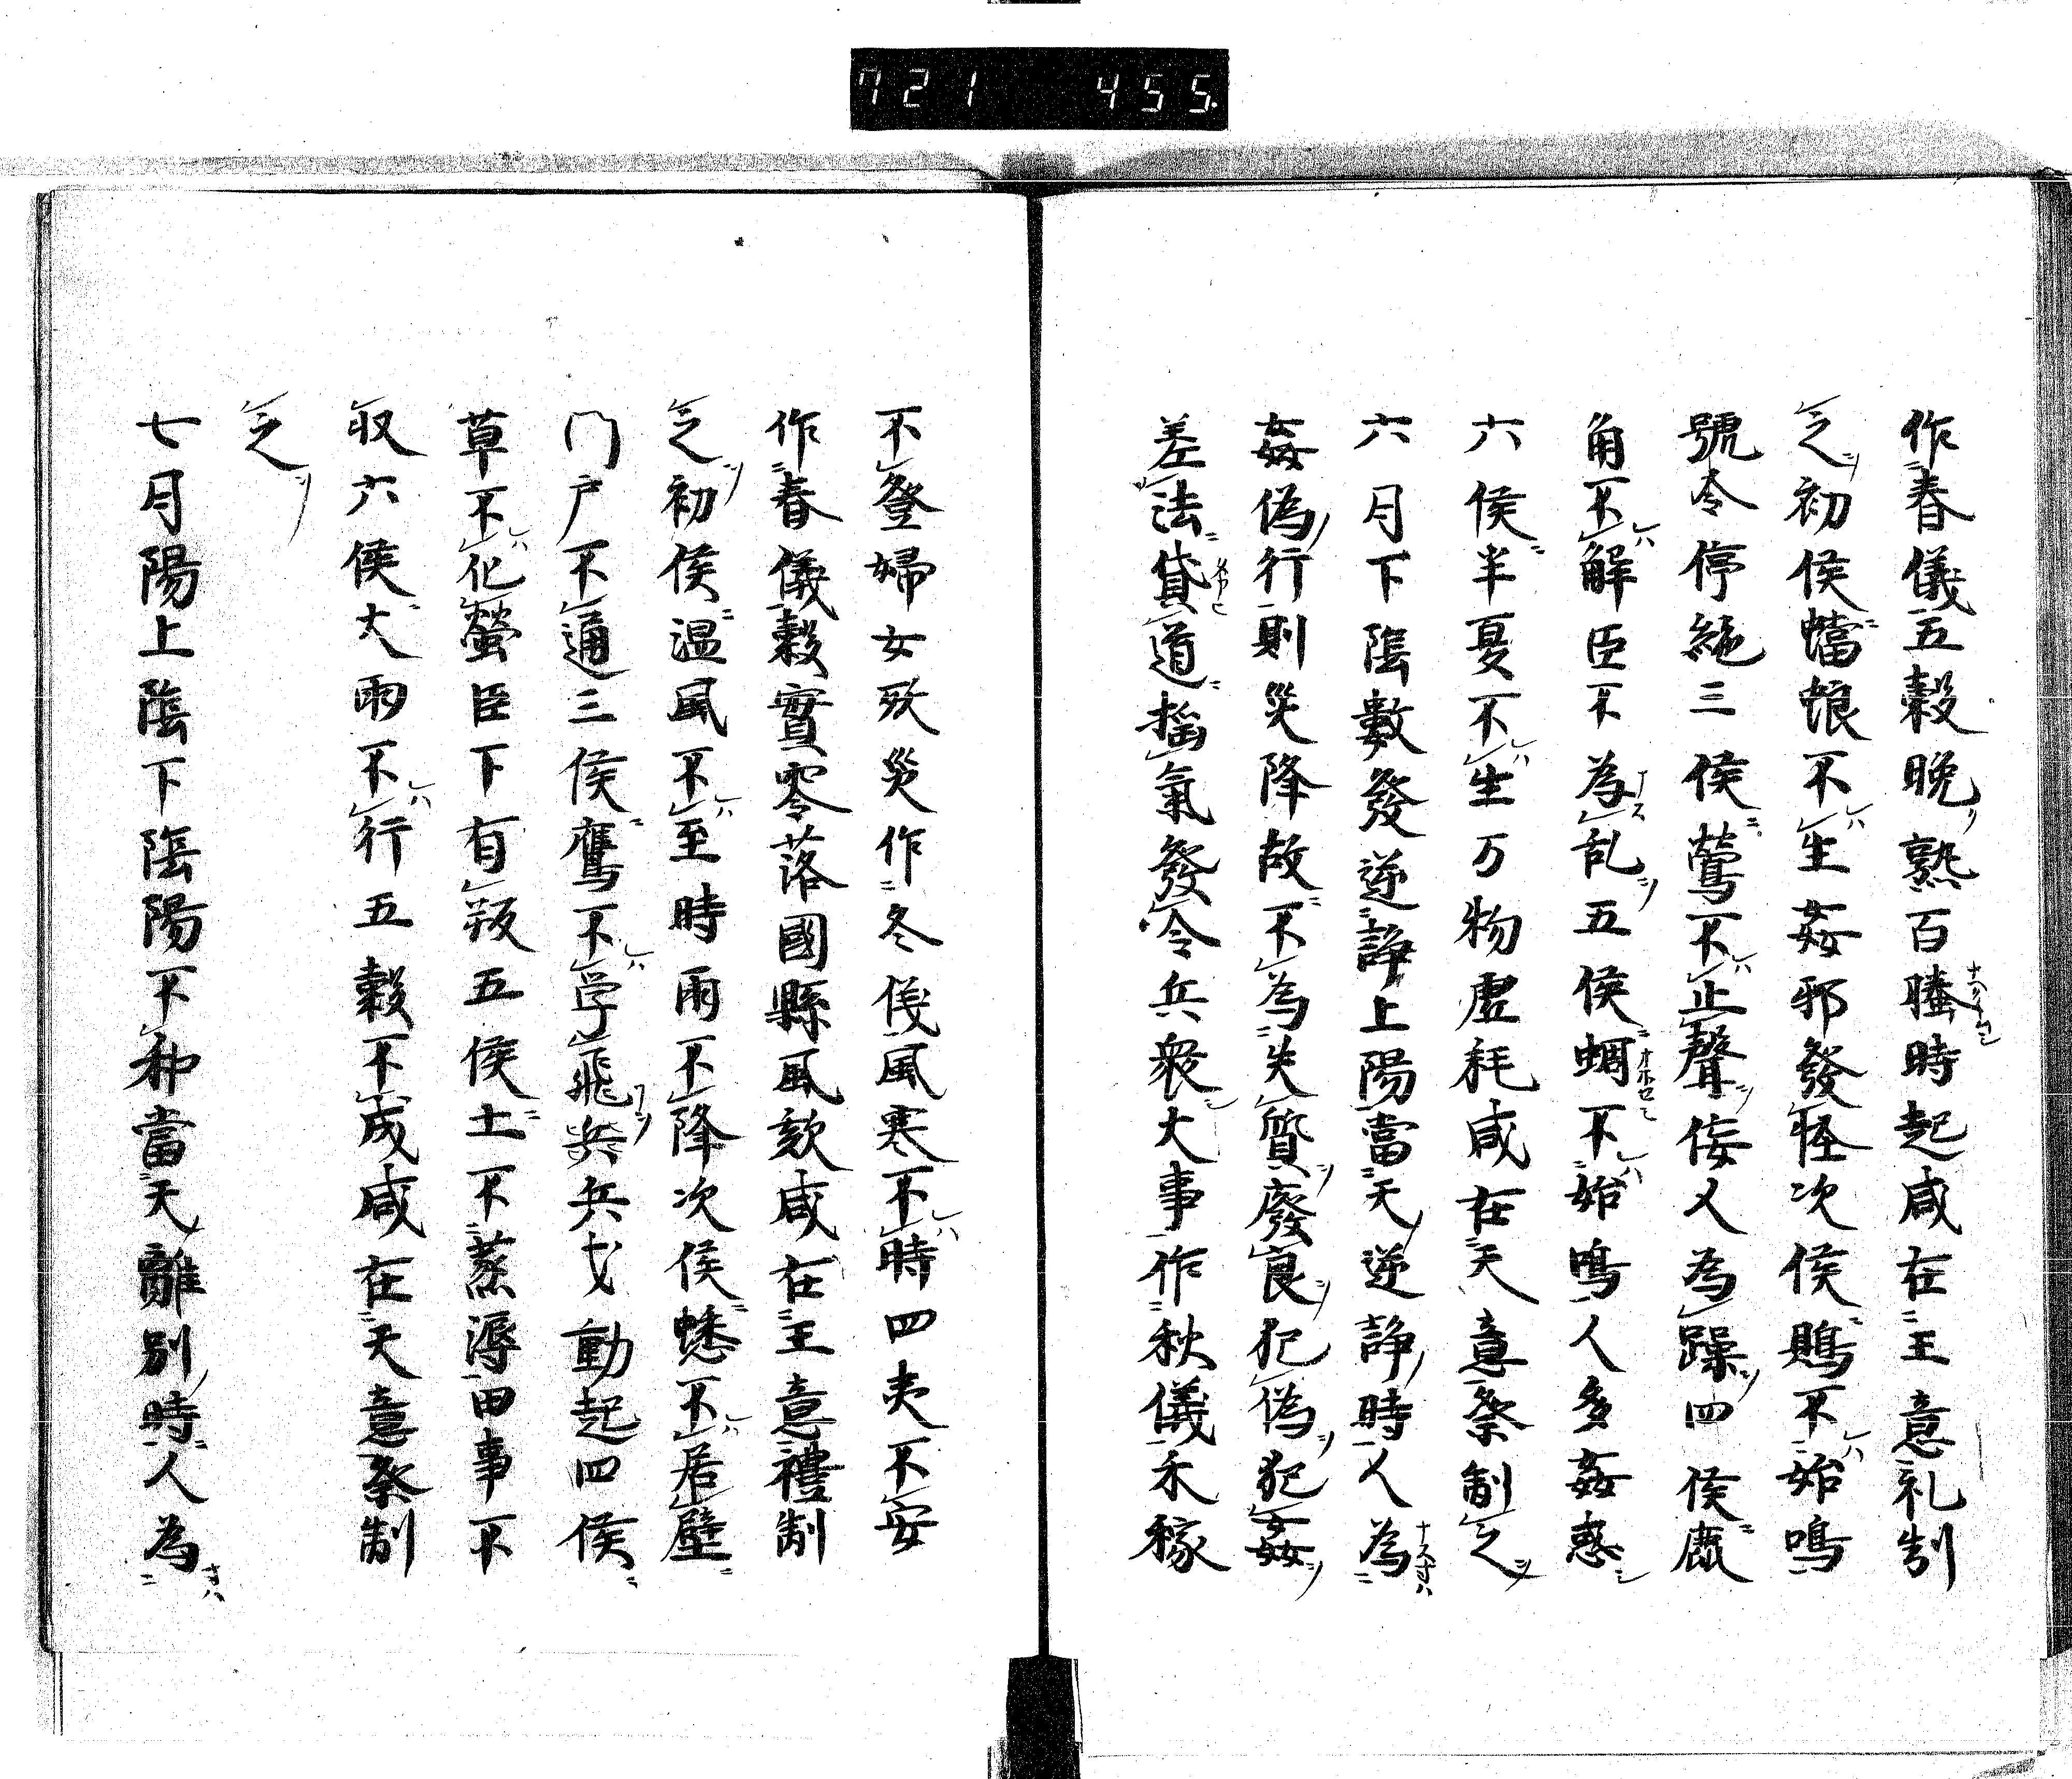 721 455
作春儀五穀晩熟百螣時起咸在王意礼制
之初侯蟷蜋不生姦邪發怪次侯鵙不始鳴
號令停絶三侯鶯不止聲侫人為躁四侯鹿
角不解臣不為乱五侯蜩不始鳴人多姦惑
六侯半夏不生万物虚耗咸在天意祭制之
六月下陰數發逆諍上陽當天逆諍時人為
姦偽行則災降故不為失質廢良犯偽犯姦
差法貸道揺氣發令兵衆大事作秋儀禾稼
不登婦女殃災作冬儀風寒不時四夷不安
作春儀穀實零落國縣風欬咸在王意禮制
之初侯温風不至時雨不降次侯蟋不居壁
门戸不通三侯鷹不学飛兵兵戈動起四侯
草不化螢臣下有叛五侯土不蒸溽田事不
収六侯大雨不行五穀不成咸在天意祭制
之
七月陽上陰下陰陽不和當天離別時人為